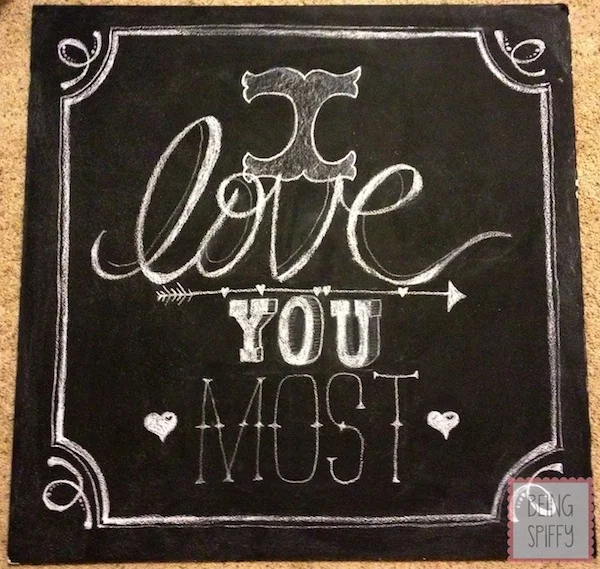 I
love
YOU
MOST
BEING
SPIFFY